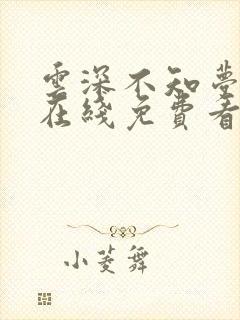 雲深不知夢
在綫免費看
小菱舞